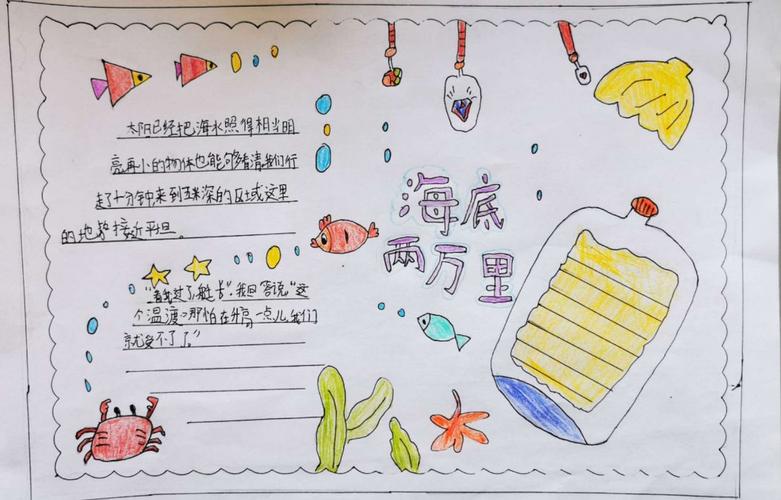 太阳已经把海水照得相当明
亮再小的物体也能够看清我们行
走了十分钟来到五米深的区域这里
的地势接近平坦。
海底
两万里
"看到过了,船长",我回答说,"这
个温渡,那怕在升高一点儿我们
就受不了了。"